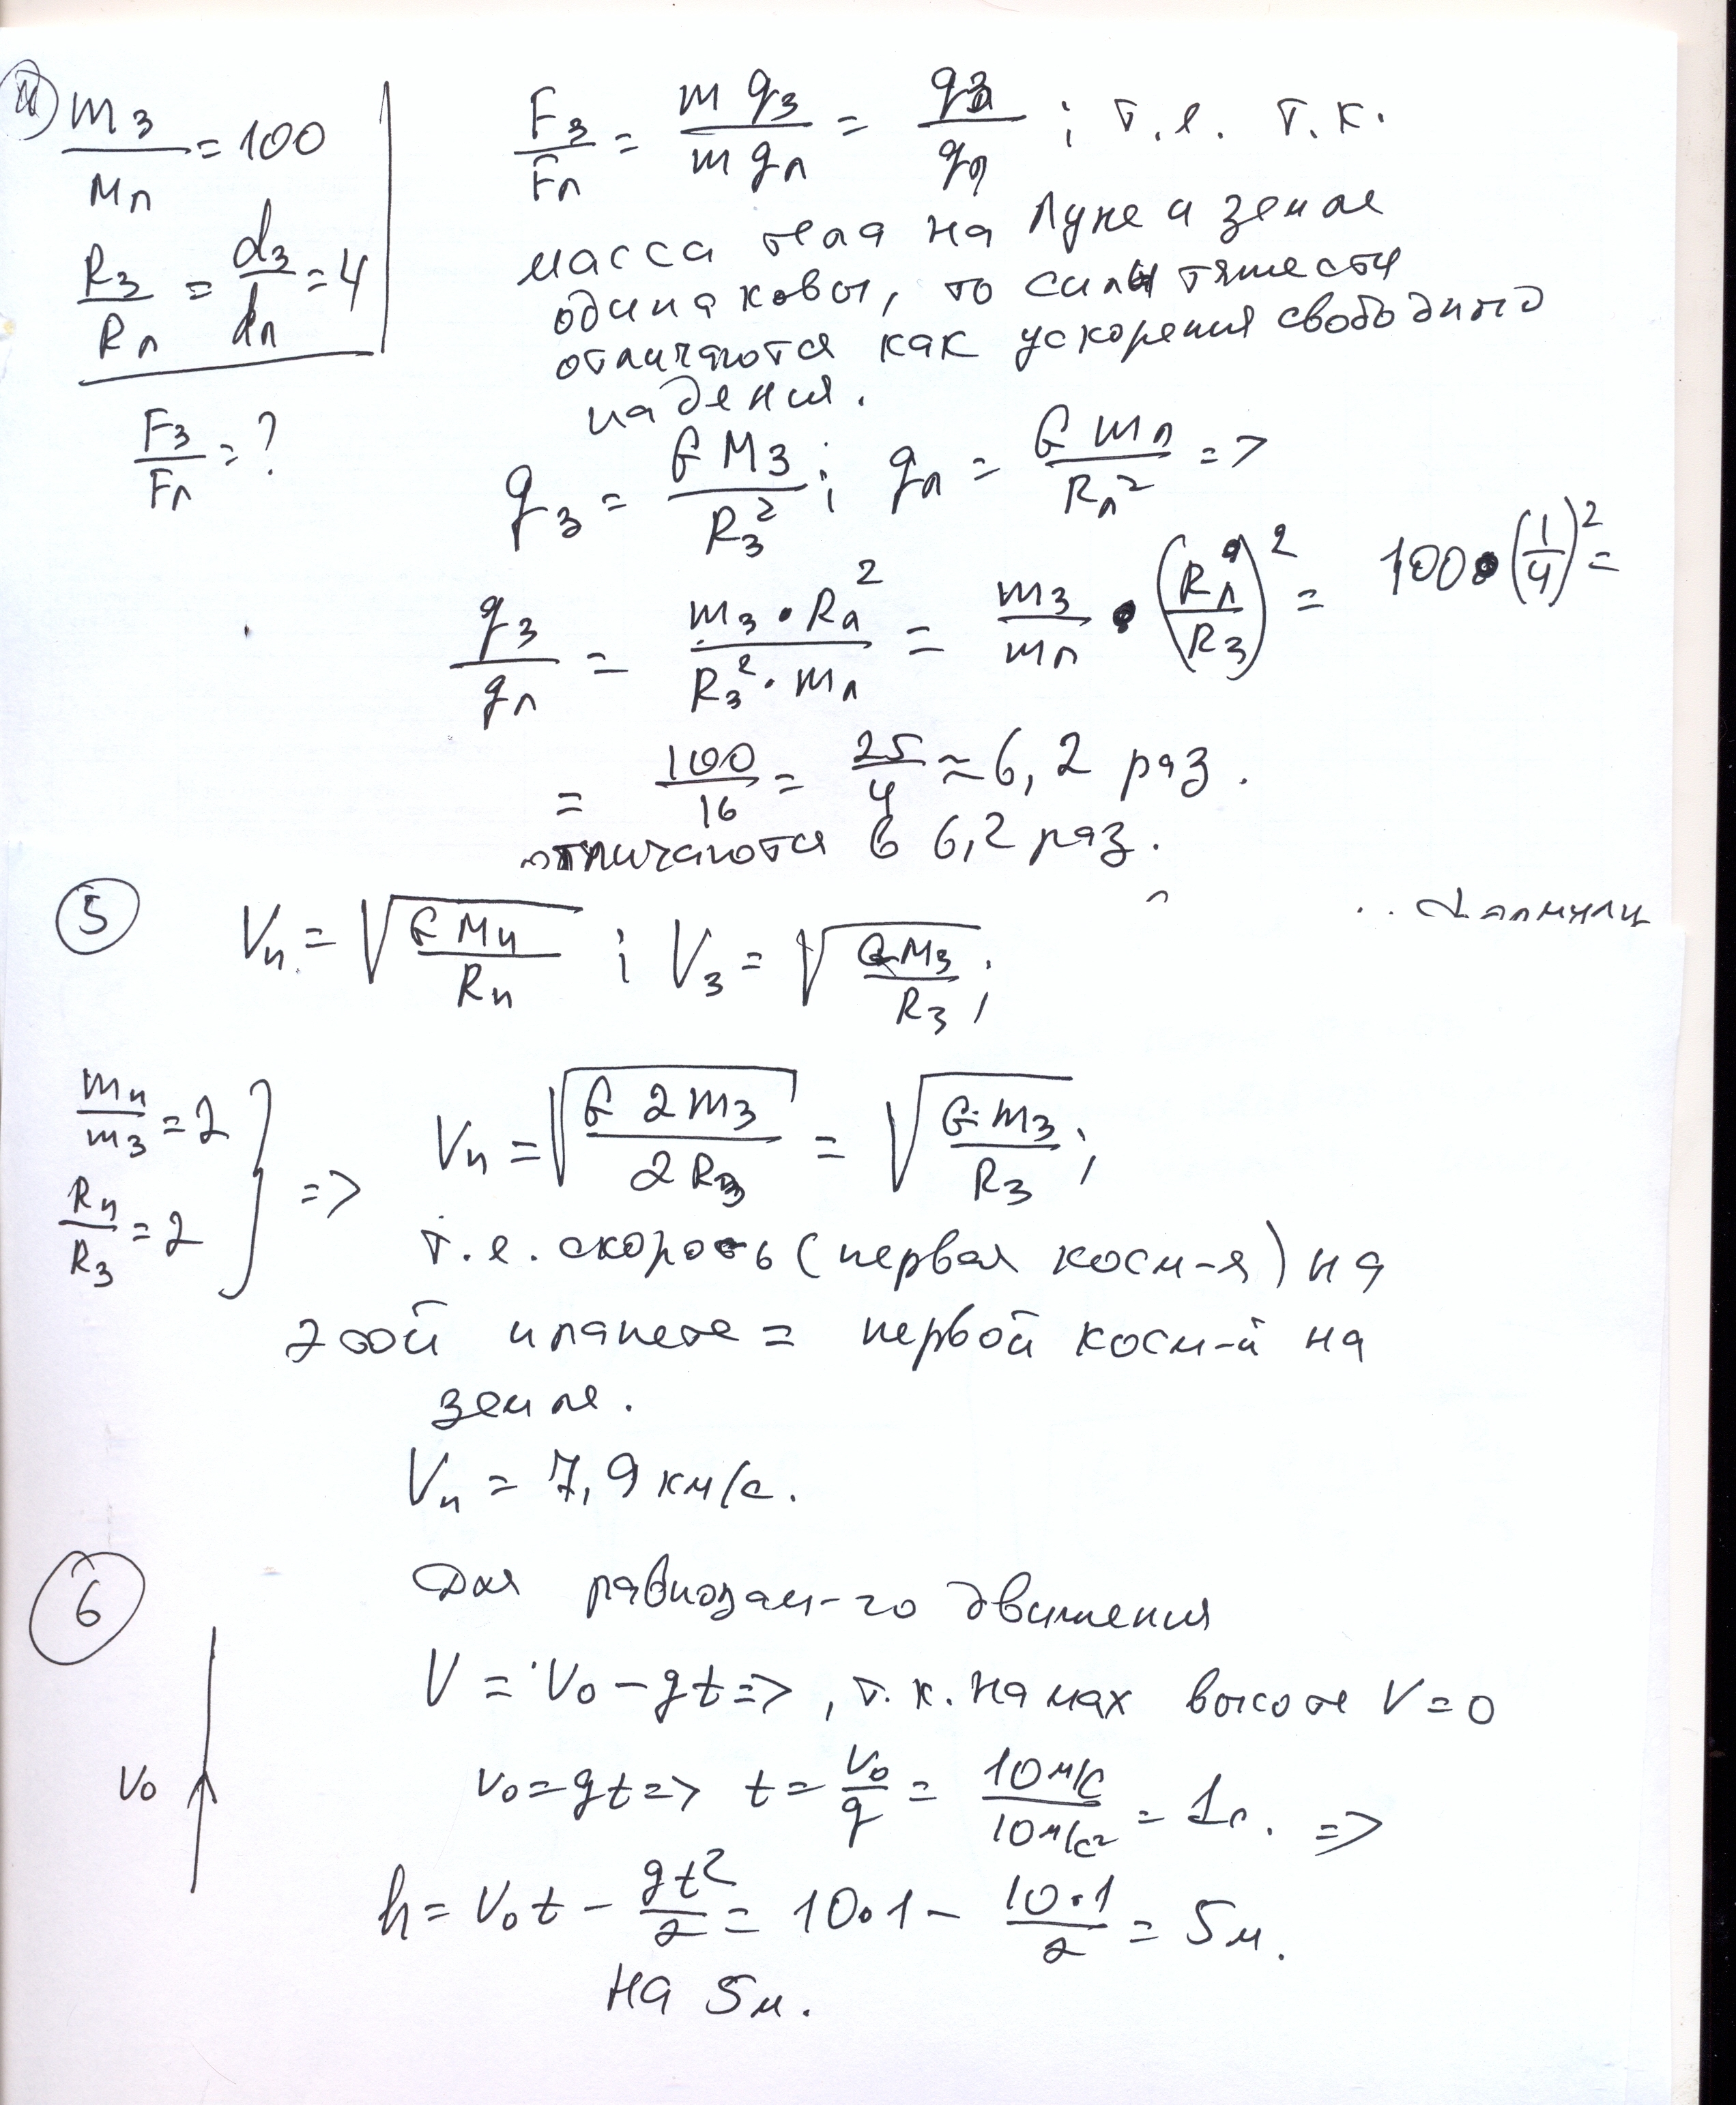 4) m₃/Mл = 100
R₃/Rл = d₃/dл = 4
F₃/Fл = ?
F₃/Fл = m g₃/m gл = g₃/gл ; т.е. т.к.
масса тела на Луне и земле
одинаковы, то силы тяжести
отличаются как ускорения свободного
падения.
g₃ = G M₃/R₃² ; gл = G mл/Rл² =>
g₃/gл = m₃ • Rл²/R₃² • mл = m₃/mл • (Rл/R₃)² = 100 • (1/4)² =
= 100/16 = 25/4 ≈ 6,2 раз.
отличаются в 6,2 раз.
5 Vп = √(G Mп/Rп) ; V₃ = √(GM₃/R₃) ;
mп/m₃ = 2
Rп/R₃ = 2
} => Vп = √(G 2m₃/2R₃) = √(G·m₃/R₃) ;
т.е. скорость (первая косм-я) на
этой планете = первой косм-й на
земле.
Vп = 7,9 км/с.
6 Для равнозам-го движения
V = V₀ - gt => , т.к. на мах высоте V = 0
V₀
V₀ = gt => t = V₀/g = 10м/с/10м/с² = 1с. =>
h = V₀t - gt²/2 = 10•1 - 10•1/2 = 5м.
на 5м.